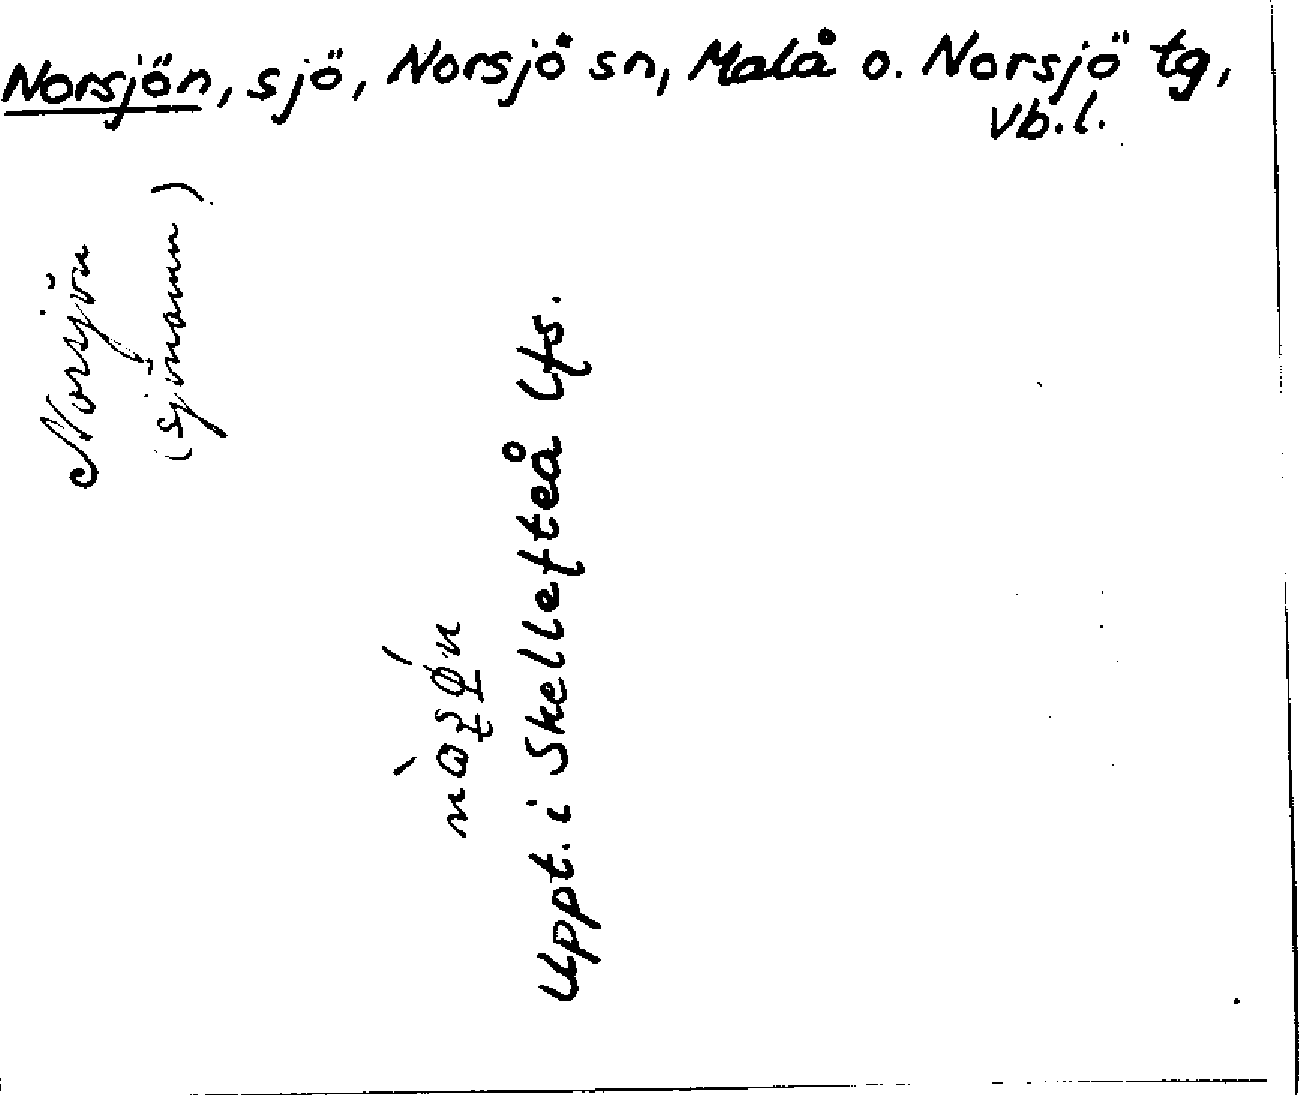 Norsjön, sjö, Norsjö sn, Malå o. Norsjö tg,
Vb.l.
Norsjön
(sjönamn)
Uppt. i Skellefteå lfs.